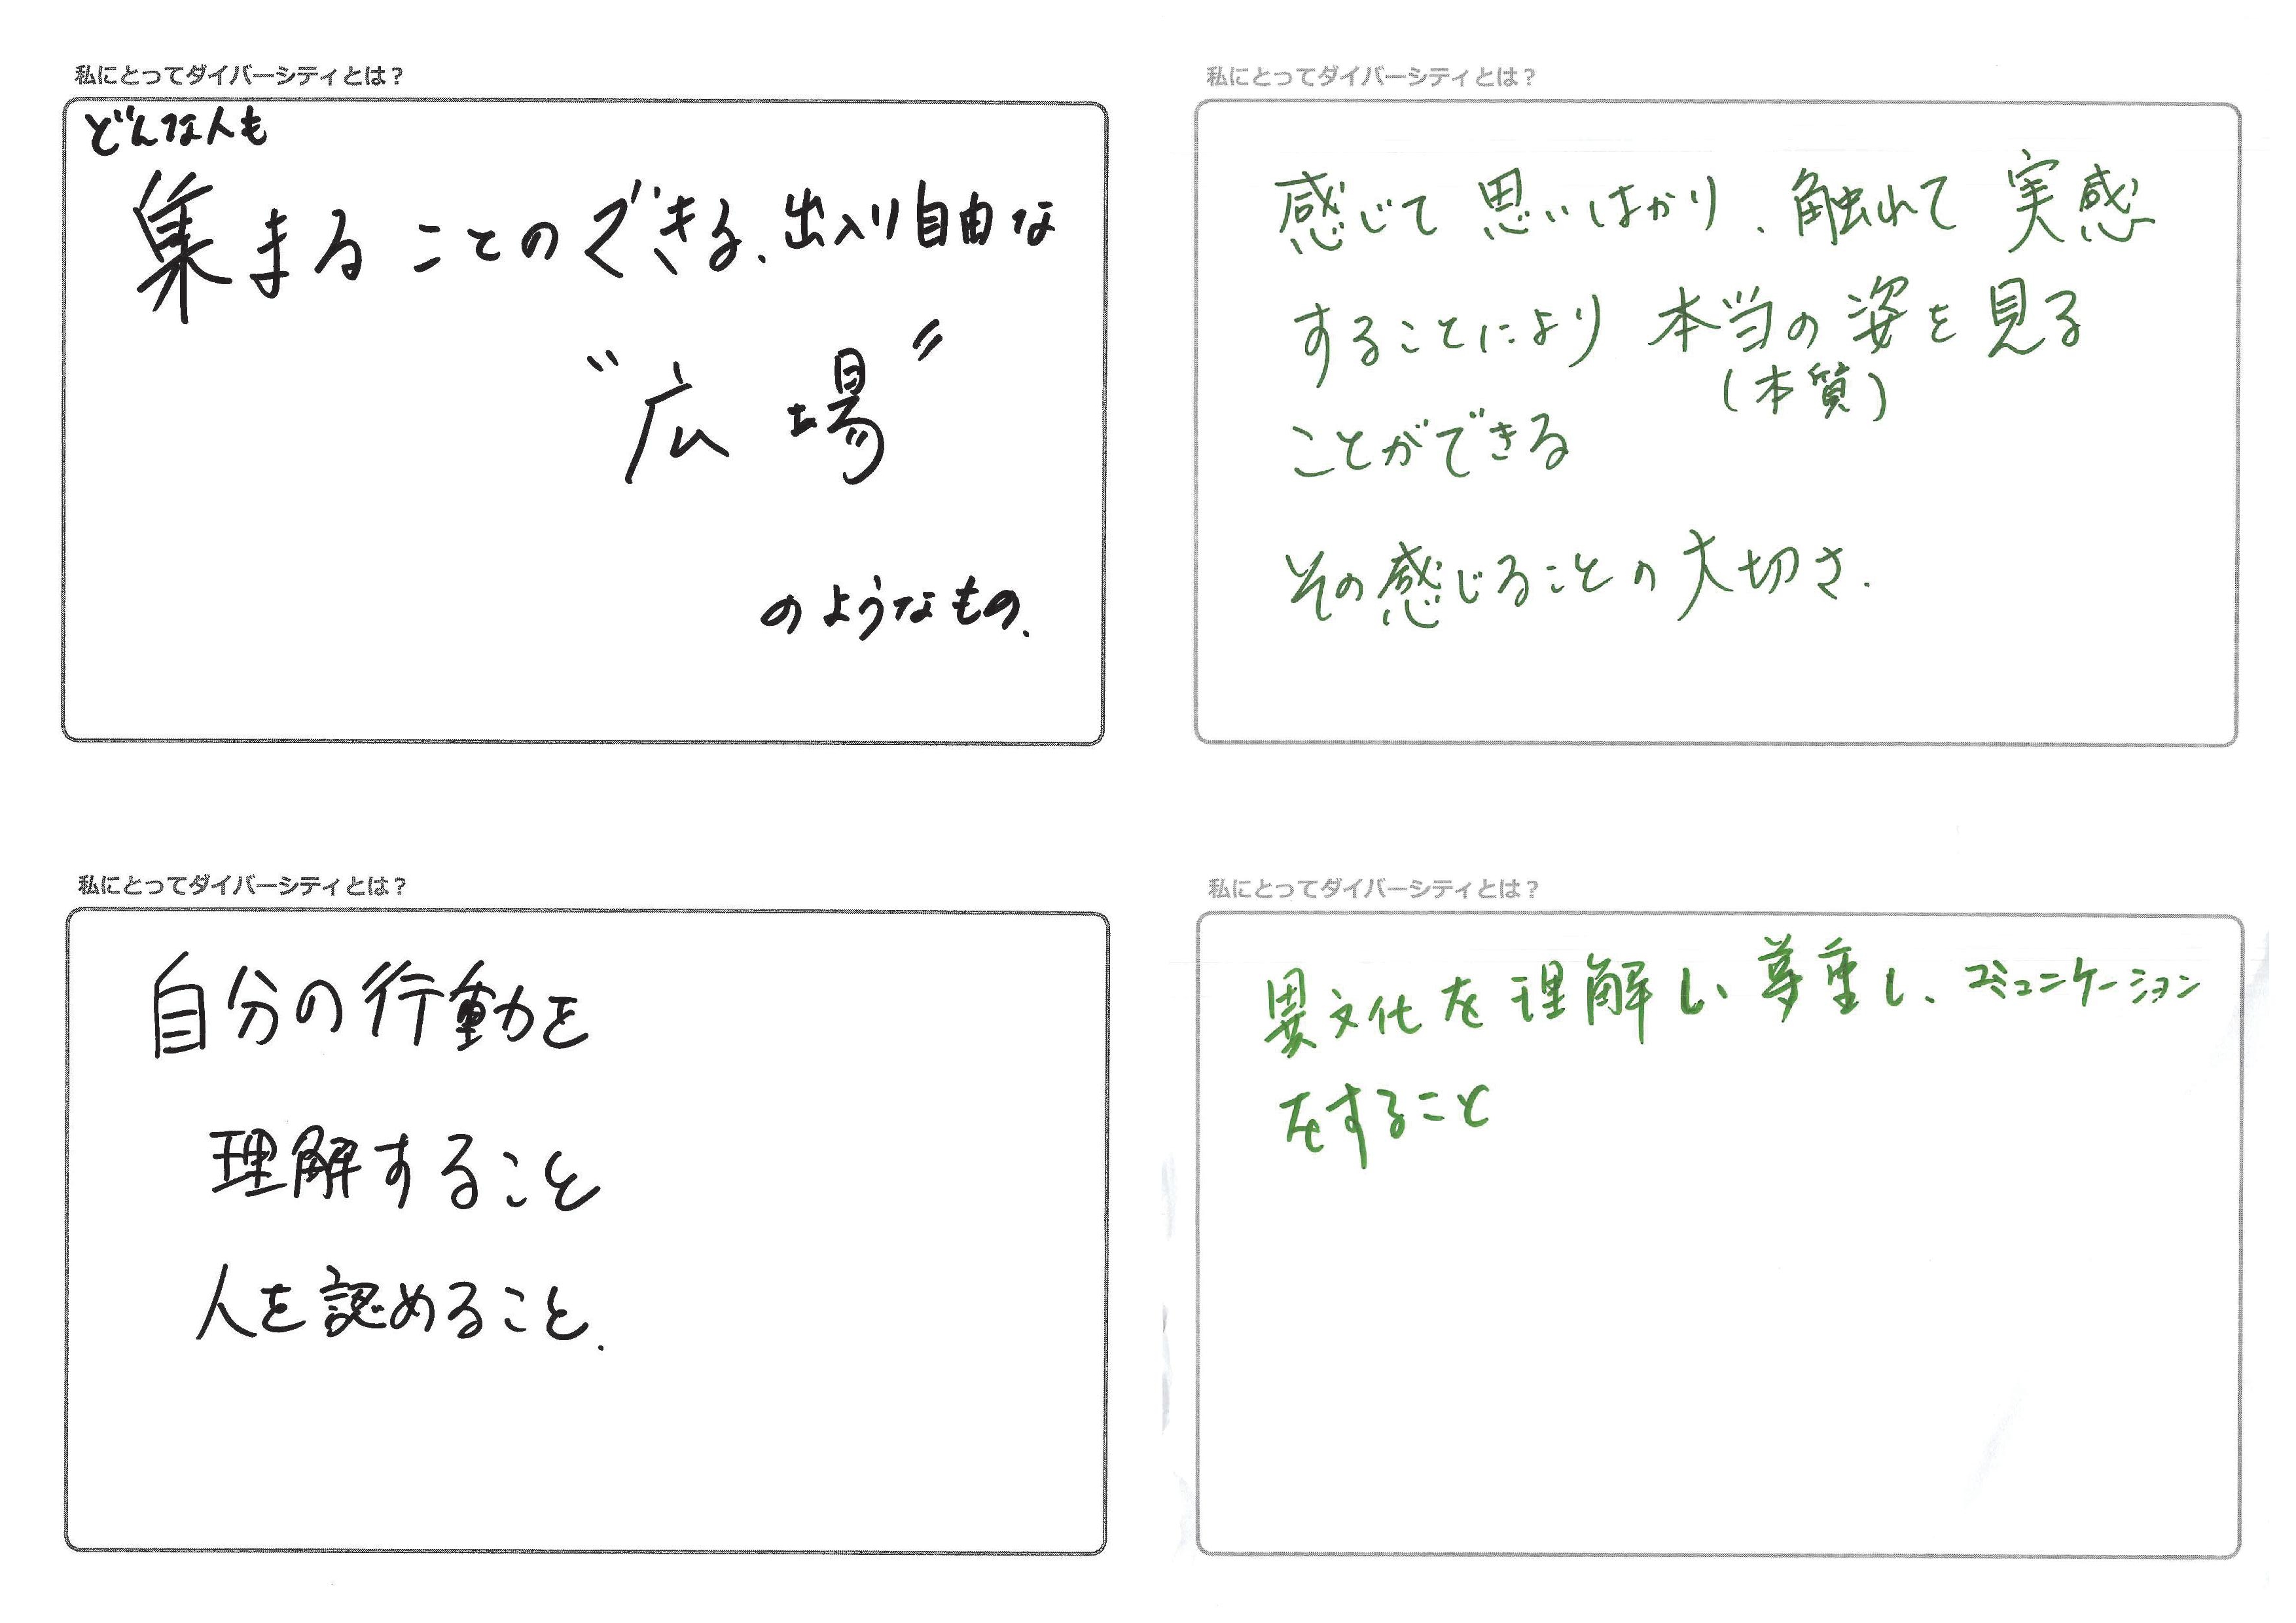 私にとってダイバーシティとは？
どんな人も
集まることのできる、出入り自由な
"広場"
のようなもの.
私にとってダイバーシティとは？
感じて思いはかり、触れて実感
することにより本当の姿を見る
(本質)
ことができる
その感じることの大切さ.
私にとってダイバーシティとは？
自分の行動を
理解すること
人を認めること.
私にとってダイバーシティとは？
異文化を理解し、尊重し、コミュニケーション
をすること